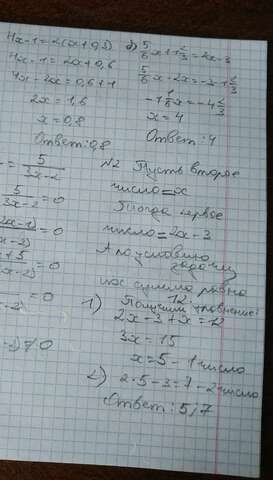 4x-1=2(x+0,3)
4x-1=2x+0,6
4x-2x=0,6+1
2x=1,6
x=0,8
Ответ: 0,8
б) 5/6 x + 1 2/3 = 2x-3
5/6 x - 2x = -3-1 2/3
-1 1/6 x = -4 2/3
x=4
Ответ: 4
= 5/(3x-2)
5/(3x-2) =0
=0
=0
=0
≠0
№2 Пусть второе
число = x
Тогда первое
число = 2x-3
А по условию
задачи
их сумма равна
12
Получим уравнение:
1) 2x-3+x=12
3x=15
x=5 - 1 число
2) 2·5-3=7 - 2 число
Ответ: 5; 7